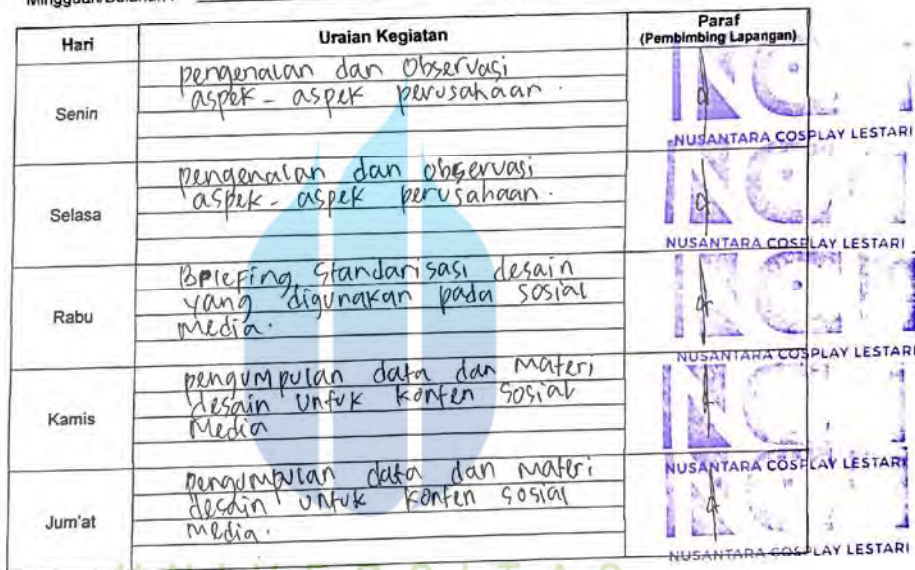 Hari Uraian Kegiatan Paraf
(Pembimbing Lapangan)
Senin
pengenalan dan Observasi
aspek - aspek perusahaan.
NUSANTARA COSPLAY LESTARI
Selasa
pengenalan dan observasi
aspek - aspek perusahaan.
NUSANTARA COSPLAY LESTARI
Rabu
Briefing Standarisasi desain
yang digunakan pada sosial
media.
NUSANTARA COSPLAY LESTARI
Kamis
pengumpulan data dan materi
desain untuk konten sosial
Media
NUSANTARA COSPLAY LESTARI
Jum'at
pengumpulan data dan materi
desain untuk konten sosial
media.
NUSANTARA COSPLAY LESTARI